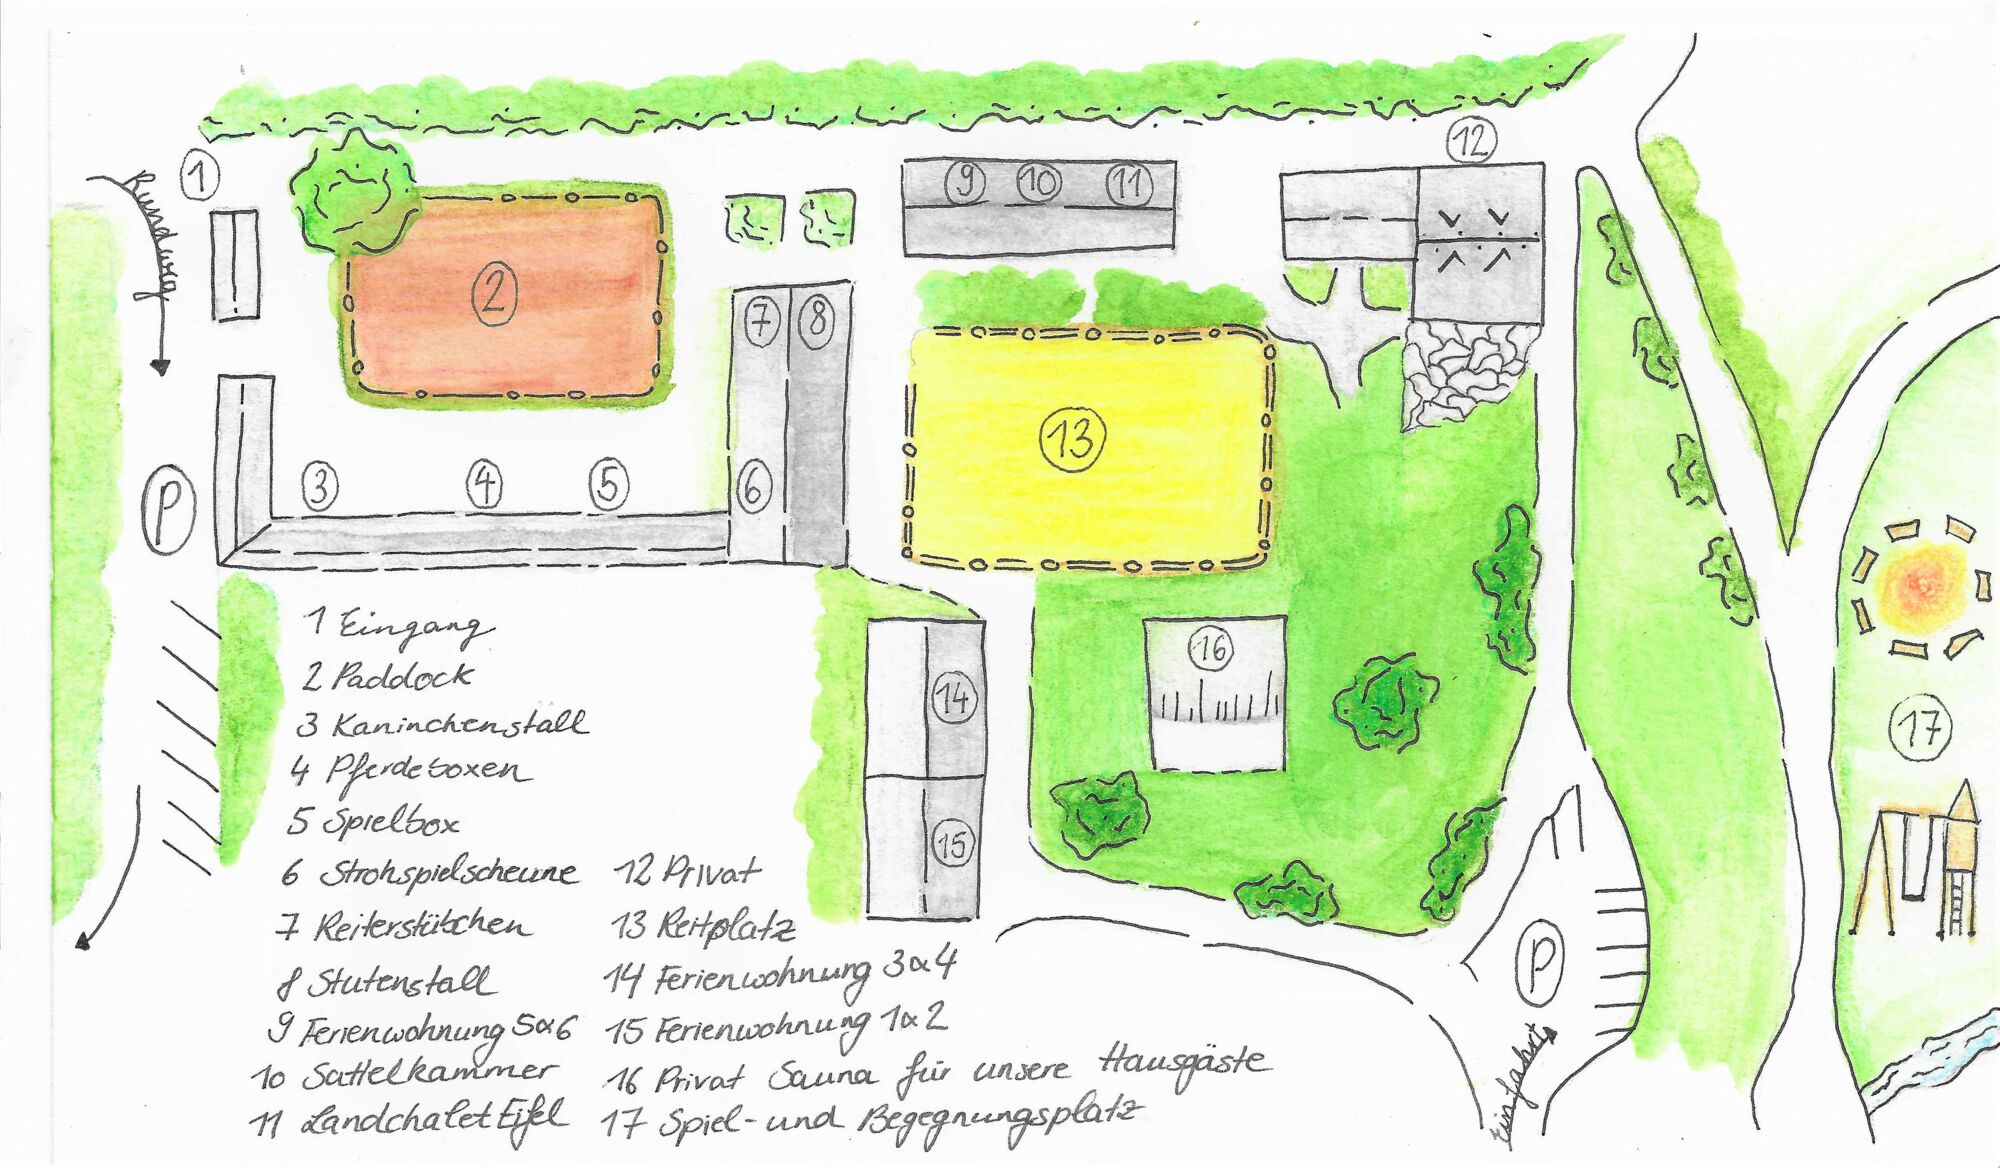 1
12
9 10 11
Rundweg
2
7 8
13
3 4 5 6
P
16
14
17
15
P
Einfahrt
1 Eingang
2 Paddock
3 Kaninchenstall
4 Pferdeboxen
5 Spielbox
6 Strohspielscheune
7 Reiterstübchen
8 Stutenstall
9 Ferienwohnung 5&6
10 Sattelkammer
11 Landchalet Eifel
12 Privat
13 Reitplatz
14 Ferienwohnung 3&4
15 Ferienwohnung 1&2
16 Privat Sauna für unsere Hausgäste
17 Spiel- und Begegnungsplatz